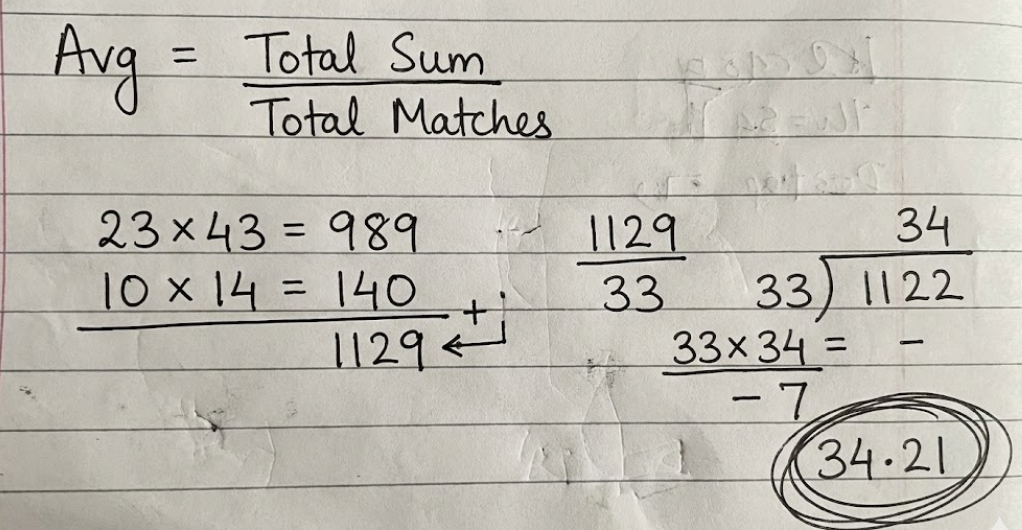 Avg = Total Sum
Total Matches
23 × 43 = 989
10 × 14 = 140 +
1129
1129
33
34
33) 1122
33 × 34 = -
- 7
34.21